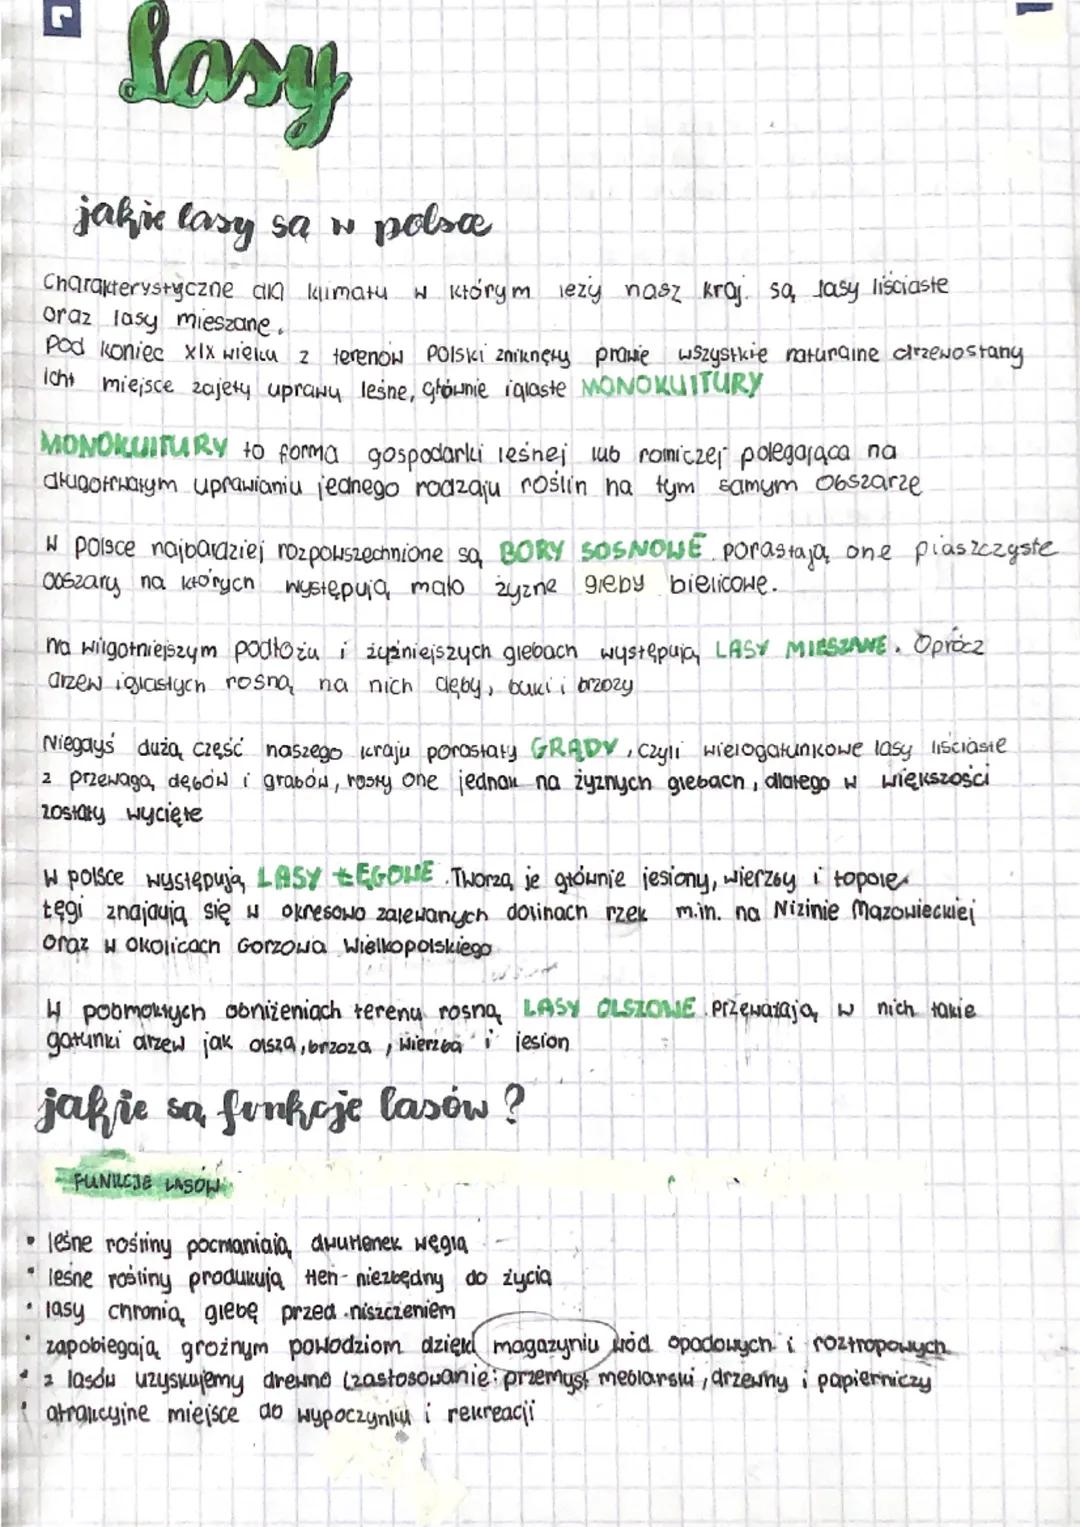 Lasy
jakie lasy są w polsce
Charakterystyczne dla klimatu w którym leży nasz kraj. są lasy liściaste
oraz lasy mieszane.
Pod koniec XIX wieku z terenów Polski zniknęły prawie wszystkie naturalne drzewostany
Ich miejsce zajęły uprawy leśne, głównie iglaste MONOKULTURY
MONOKULTURY to forma gospodarki leśnej lub rolniczej polegająca na
długotrwałym uprawianiu jednego rodzaju roślin na tym samym obszarze
W Polsce najbardziej rozpowszechnione są BORY SOSNOWE. porastają one piaszczyste
obszary na których występują mało żyzne gleby bielicowe.
na wilgotniejszym podłożu i żyźniejszych glebach występują LASY MIESZANE. Oprócz
drzew iglastych rosną na nich dęby, buki i brzozy
Niegdyś dużą część naszego kraju porastały GRĄDY, czyli wielogatunkowe lasy liściaste
z przewagą dębów i grabów, rosły one jednak na żyznych glebach, dlatego w większości
zostały wycięte
W polsce występują LASY ŁĘGOWE. Tworzą je głównie jesiony, wierzby i topole
Łęgi znajdują się w okresowo zalewanych dolinach rzek m.in. na Nizinie Mazowieckiej
oraz w okolicach Gorzowa Wielkopolskiego
W podmokłych obniżeniach terenu rosną LASY OLSZOWE. Przeważają w nich takie
gatunki drzew jak olsza, brzoza, wierzba i jesion
jakie są funkcje lasów?
FUNKCJE LASÓW
• leśne rośliny pochłaniają dwutlenek węgla
• leśne rośliny produkują tlen - niezbędny do życia
• lasy chronią glebę przed niszczeniem
• zapobiegają groźnym powodziom dzięki magazyniu wód opadowych i roztopowych
• z lasów uzyskujemy drewno (zastosowanie: przemysł meblarski, drzewny i papierniczy
• atrakcyjne miejsce do wypoczynku i rekreacji